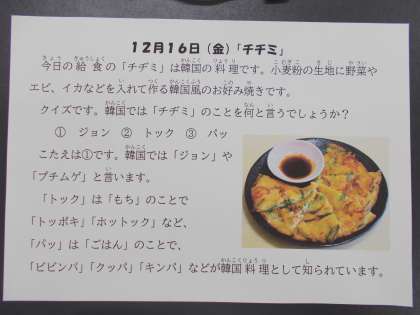 12月16日（金）「チヂミ」
今日の給食の「チヂミ」は韓国の料理です。小麦粉の生地に野菜や
エビ、イカなどを入れて作る韓国風のお好み焼きです。
クイズです。韓国では「チヂミ」のことを何と言うでしょうか？
① ジョン ② トック ③ パッ
こたえは①です。韓国では「ジョン」や
「プチムゲ」と言います。
「トック」は「もち」のことで
「トッポキ」「ホットック」など、
「パッ」は「ごはん」のことで、
「ビビンパ」「クッパ」「キンパ」などが韓国料理として知られています。